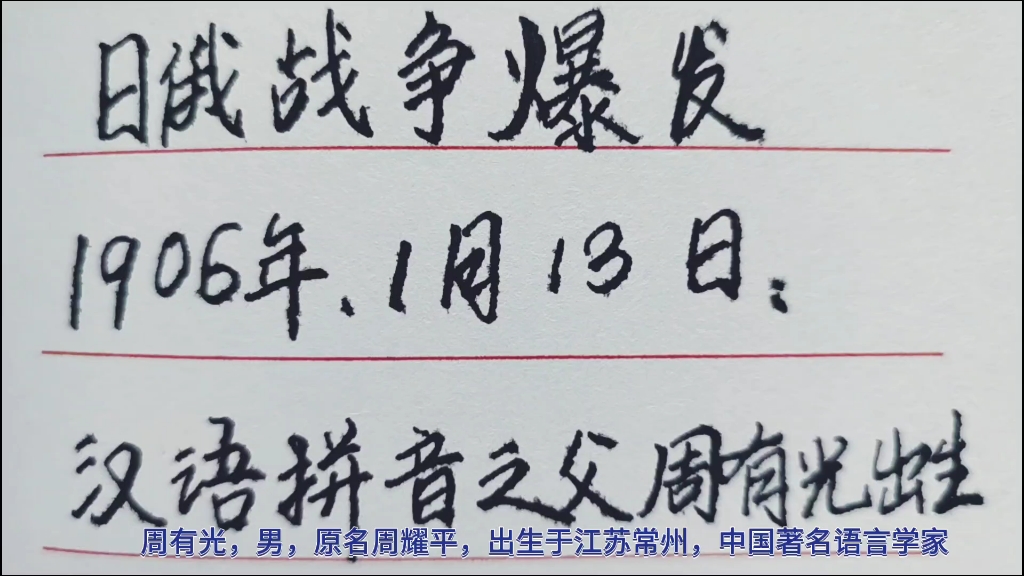 日俄战争爆发
1906年、1月13日：
汉语拼音之父周有光出生
周有光，男，原名周耀平，出生于江苏常州，中国著名语言学家